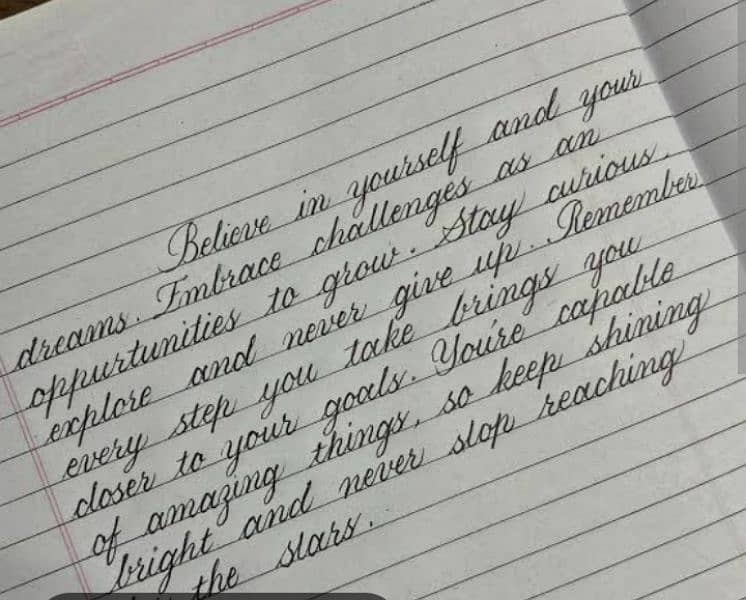 Believe in yourself and your
dreams. Embrace challenges as an
oppurtunities to grow. Stay curious,
explore and never give up.. Remember
every step you take brings you
closer to your goals. You're capable
of amazing things, so keep shining
bright and never stop reaching
the stars.